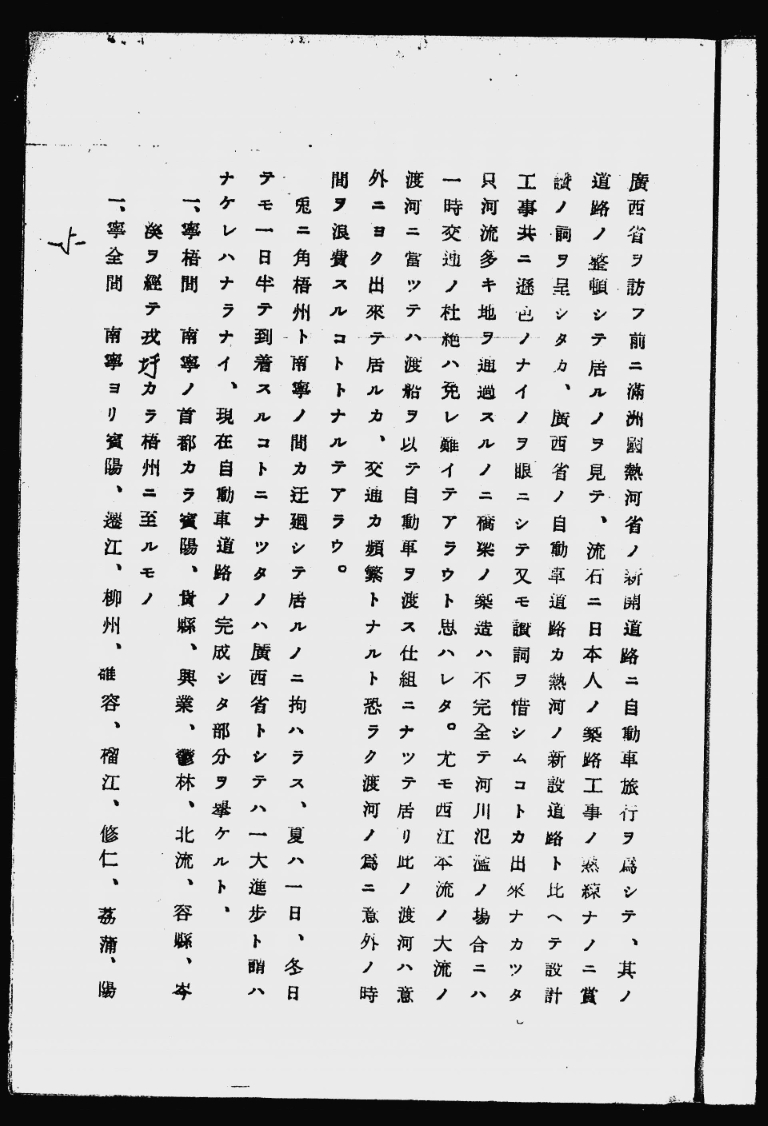 廣西省ヲ訪フ前ニ滿洲國熱河省ノ新開道路ニ自動車旅行ヲ爲シテ、其ノ
道路ノ整頓シテ居ルノヲ見テ、流石ニ日本人ノ築路工事ノ熟練ナノニ賞
讃ノ詞ヲ呈シタカ、廣西省ノ自動車道路カ熱河ノ新設道路ト比ヘテ設計
工事共ニ遜色ノナイノヲ眼ニシテ又モ讃詞ヲ惜シムコトカ出來ナカツタ
只河流多キ地ヲ通過スルノニ橋梁ノ築造ハ不完全テ河川氾濫ノ場合ニハ
一時交通ノ杜絶ハ免レ難イテアラウト思ハレタ。尤モ西江本流ノ大流ノ
渡河ニ當ツテハ渡船ヲ以テ自動車ヲ渡ス仕組ニナツテ居リ此ノ渡河ハ意
外ニヨク出來テ居ルカ、交通カ頻繁トナルト恐ラク渡河ノ爲ニ意外ノ時
間ヲ浪費スルコトトナルテアラウ。
兎ニ角梧州ト南寧ノ間カ迂廻シテ居ルノニ拘ハラス、夏ハ一日、冬日
テモ一日半テ到着スルコトニナツタノハ廣西省トシテハ一大進步ト謂ハ
ナケレハナラナイ、現在自動車道路ノ完成シタ部分ヲ擧ケルト、
一、寧梧間　南寧ノ首都カラ賓陽、貴縣、興業、鬱林、北流、容縣、岑
溪ヲ經テ戎圩カラ梧州ニ至ルモノ
一、寧全間　南寧ヨリ賓陽、遷江、柳州、雒容、榴江、修仁、荔蒲、陽